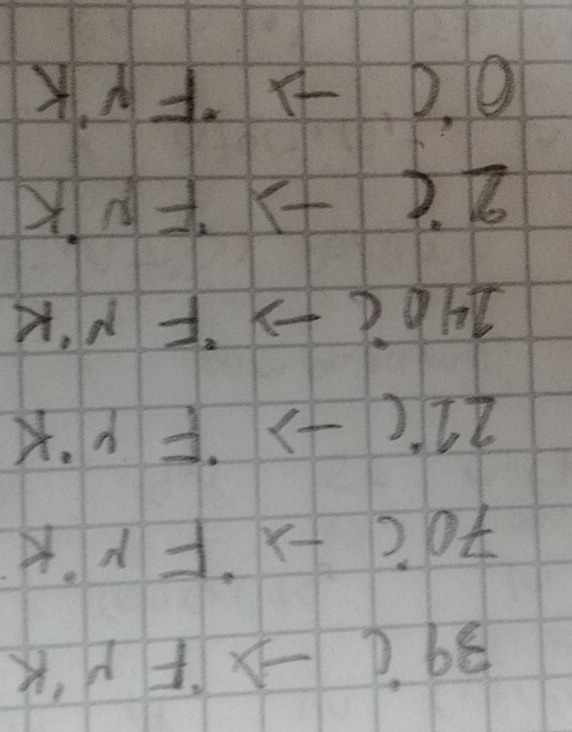 39°C → °F и °K
70°C → °F и °K
21°C → °F и °K
140°C → °F и °K
2°C → °F и °K
0°C → °F и °K